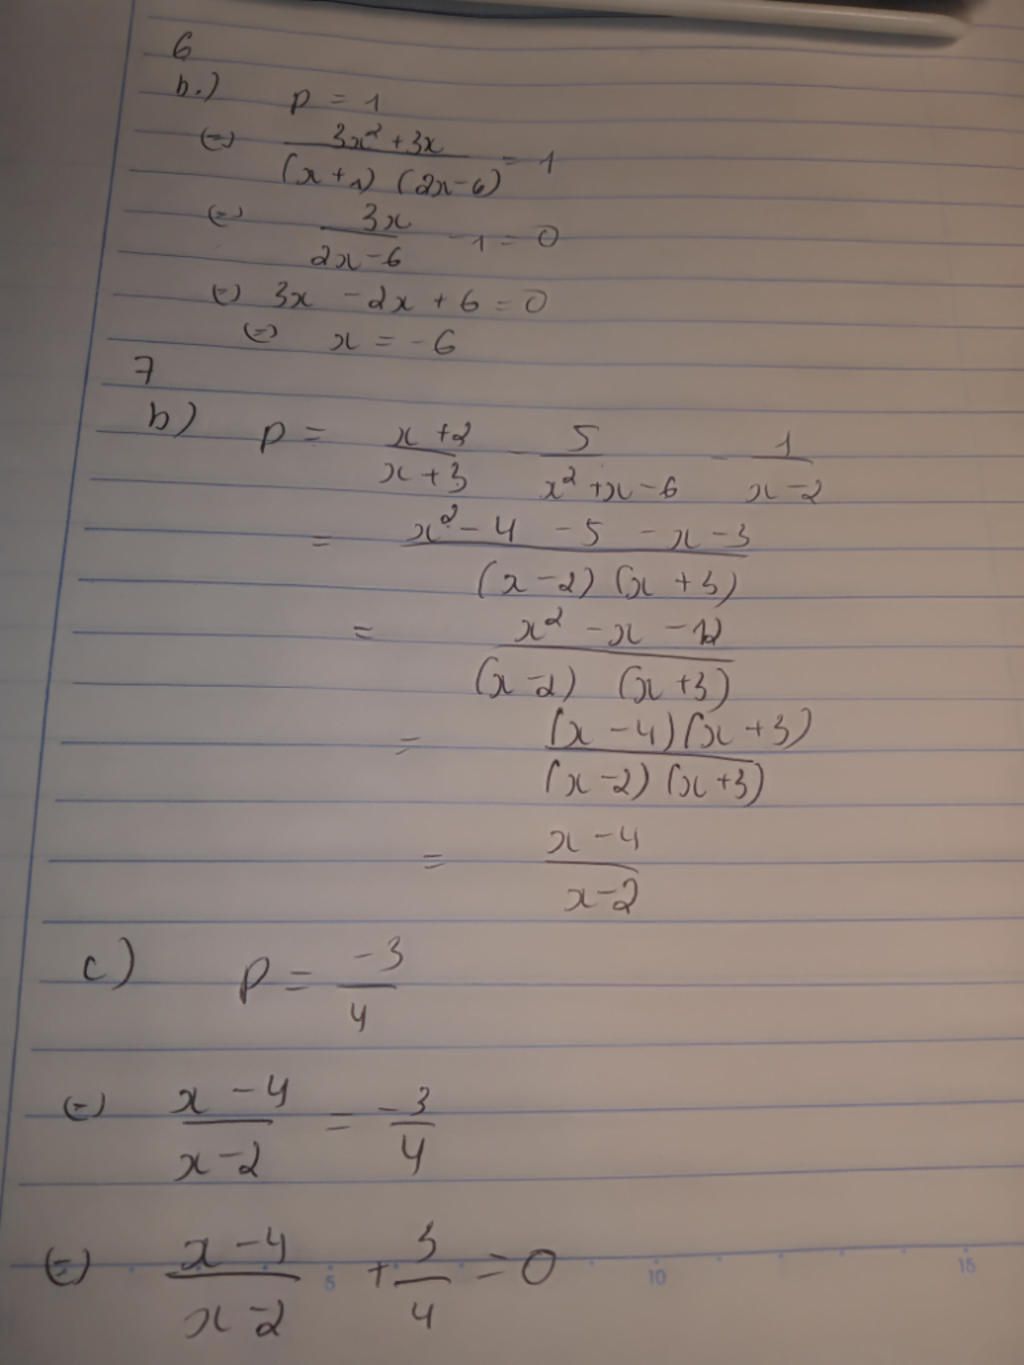 6
b.) P = 1
(=) (3x² + 3x)/((x + 1) (2x - 6)) = 1
(=) 3x/(2x - 6) - 1 = 0
(=) 3x - 2x + 6 = 0
(=) x = -6
7
b) P = (x + 2)/(x + 3) - 5/(x² + x - 6) - 1/(x - 2)
= (x² - 4 - 5 - x - 3)/((x - 2) (x + 3))
= (x² - x - 12)/((x - 2) (x + 3))
= ((x - 4)(x + 3))/((x - 2)(x + 3))
= (x - 4)/(x - 2)
c) P = -3/4
(=) (x - 4)/(x - 2) = -3/4
(=) (x - 4)/(x - 2) + 3/4 = 0
5 10 15